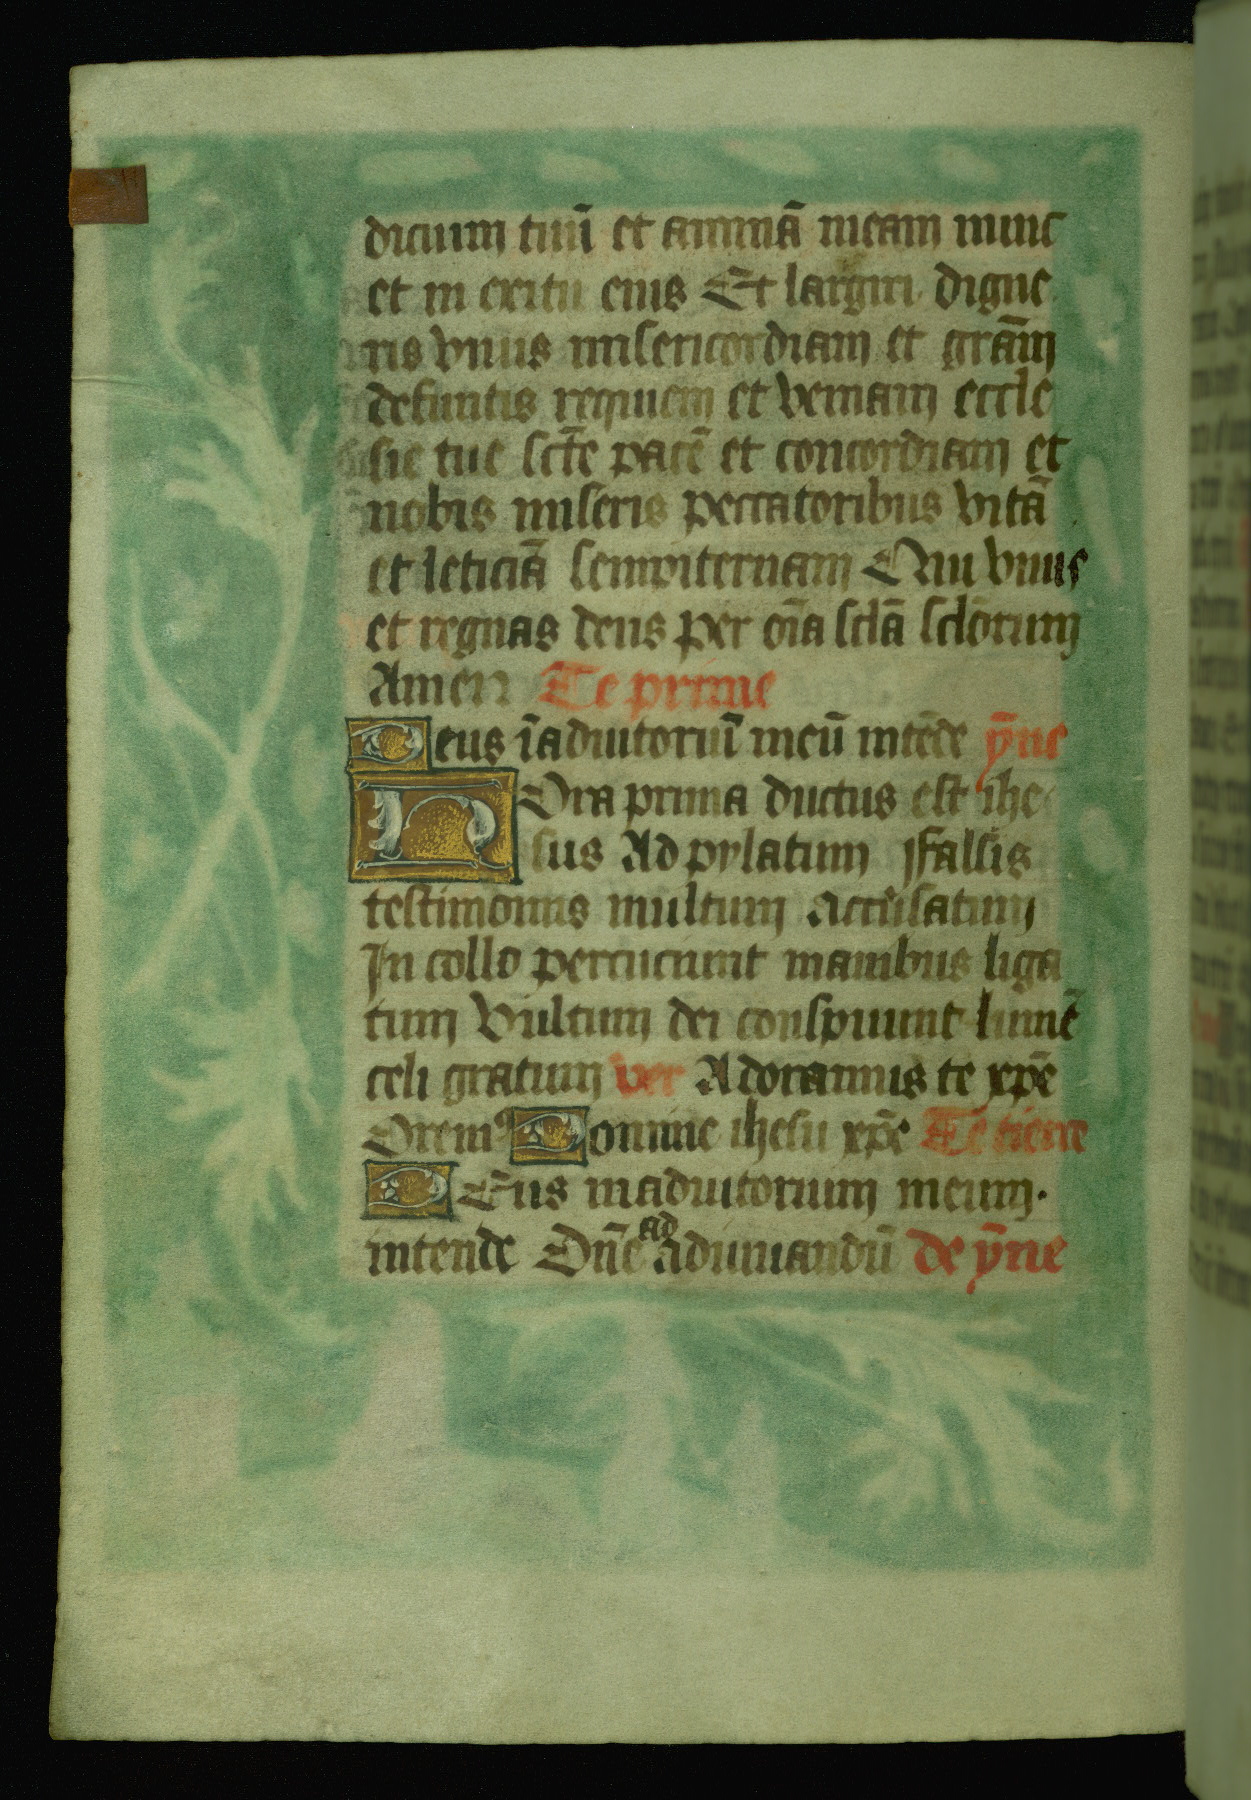 dicium tuū et animā meam nunc
et in exitu eius Et largiri digne
ris viuis misericordiam et grām
defuntis requiem et veniam eccle
sie tue sctē pacē et concordiam et
nobis miseris peccatoribus vitā
et leticiā sempiternam Qui viuis
et regnas deus per oīa sclā sclōrum
Amen Te prime
Deus ī adiutoriū meū intēde ȳne
Hora prima ductus est ihe
sus Ad pylatum Falsis
testimoniis multum accusatum
In collo percuciunt manibus liga
tum Vultum dei conspuunt lumē
celi gratum ver Adoramus te xpē
Oremꝰ Domine ihesu xpē Te tierce
DEus inadiutorium meum.
intende Dn̄e ad adiuuandū de ȳne